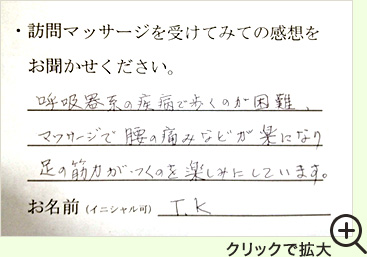 ・訪問マッサージを受けてみての感想を
お聞かせください。
呼吸器系の疾病で歩くのが困難、
マッサージで腰の痛みなどが楽になり
足の筋力がつくのを楽しみにしています。
お名前（イニシャル可） T.K
クリックで拡大